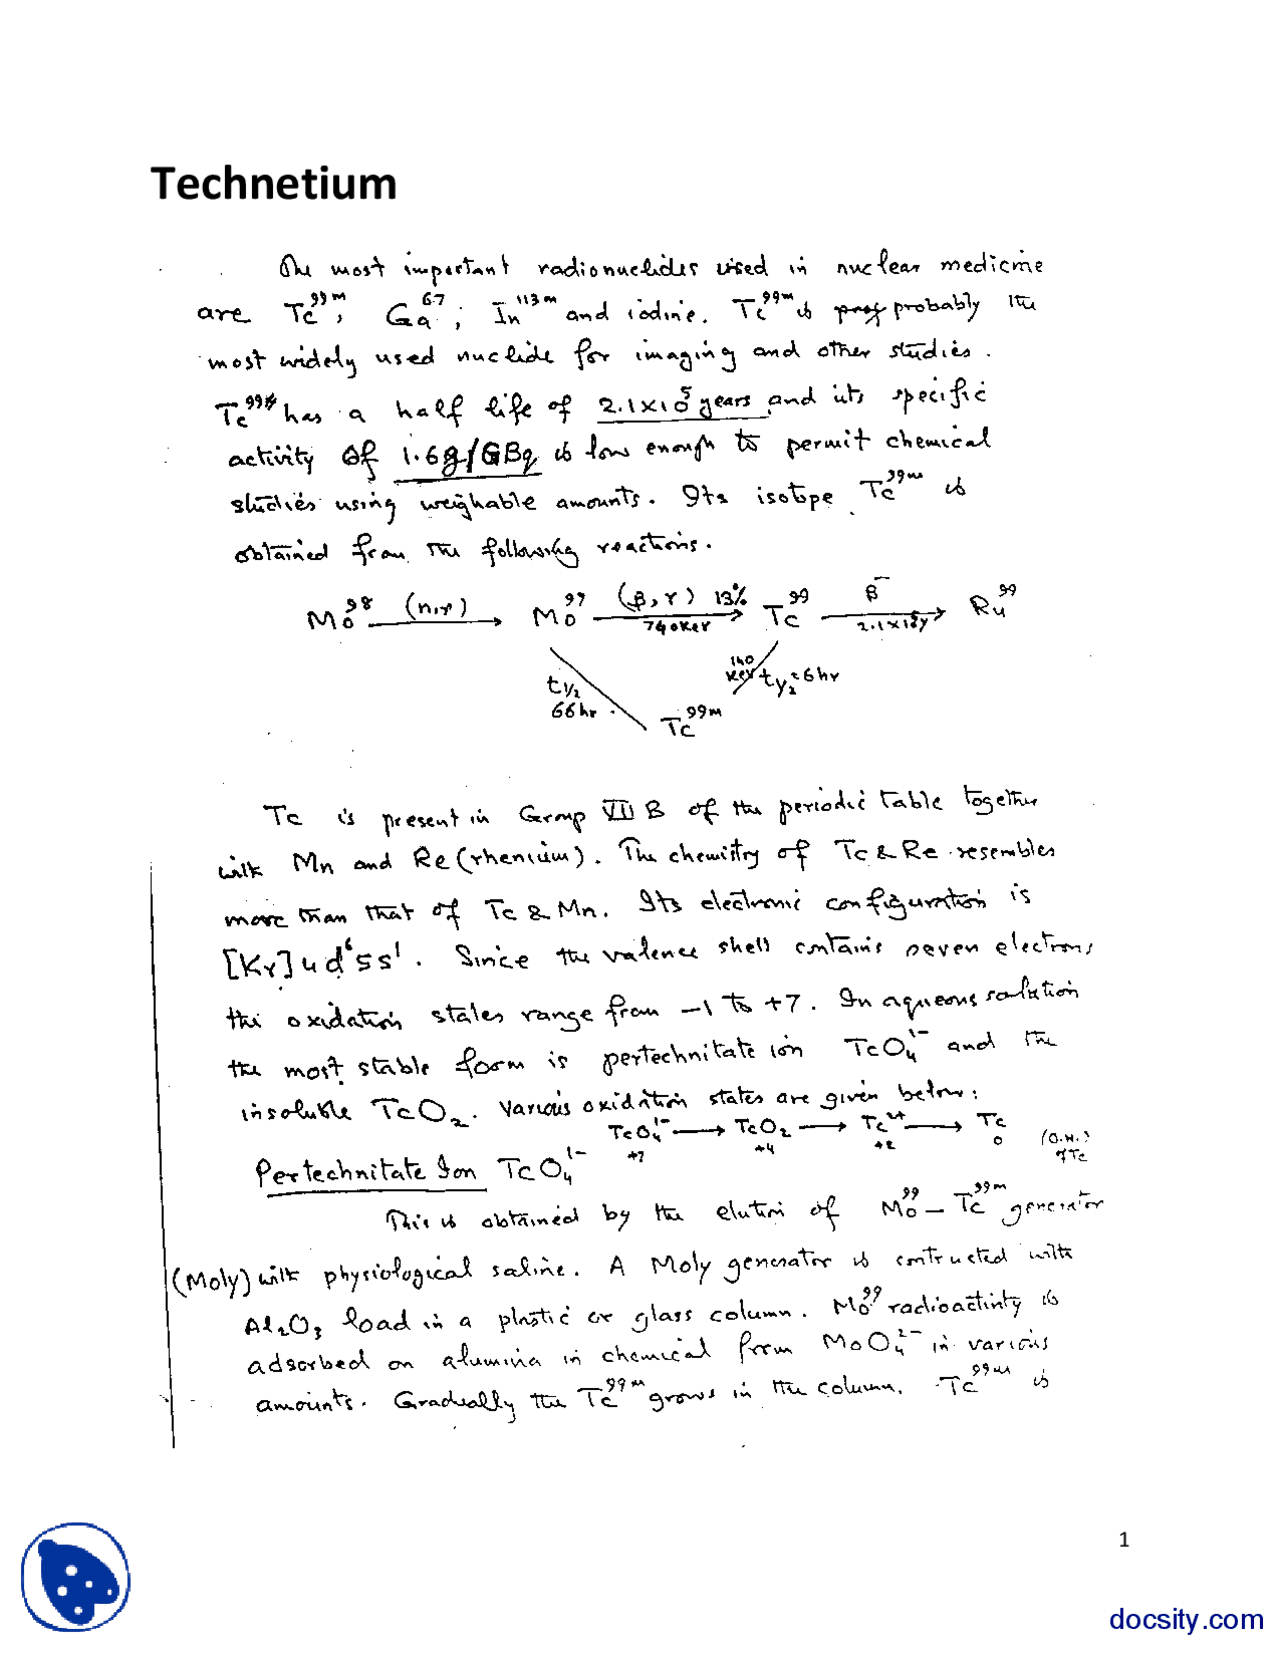 Technetium
The most important radionuclides used in nuclear medicine
are Tc⁹⁹ᵐ, Ga⁶⁷, In¹¹³ᵐ and iodine. Tc⁹⁹ᵐ is probably the
most widely used nuclide for imaging and other studies.
Tc⁹⁹ has a half life of 2.1×10⁵ years and its specific
activity of 1.6g/GBq is low enough to permit chemical
studies using weighable amounts. Its isotope Tc⁹⁹ᵐ is
obtained from the following reactions.
Mo⁹⁸ (n,γ) Mo⁹⁹ (β,γ) 13% 740KeV Tc⁹⁹ β⁻ 2.1×10⁵y Ru⁹⁹
t½ 66hr Tc⁹⁹ᵐ 140 KeV t½=6hr
Tc is present in Group VII B of the periodic table together
with Mn and Re (rhenium). The chemistry of Tc & Re resembles
more than that of Tc & Mn. Its electronic configuration is
[Kr]4d⁶5s¹. Since the valence shell contains seven electrons
the oxidation states range from -1 to +7. In aqueous solution
the most stable form is pertechnitate ion TcO₄¹⁻ and the
insoluble TcO₂. Various oxidation states are given below:
TcO₄¹⁻ → TcO₂ → Tc²⁺ → Tc
+7 +4 +2 0 (O.N.) of Tc
Pertechnitate Ion TcO₄¹⁻
This is obtained by the elution of Mo⁹⁹ – Tc⁹⁹ᵐ generator
(Moly) with physiological saline. A Moly generator is contructed with
Al₂O₃ load in a plastic or glass column. Mo⁹⁹ radioactivity is
adsorbed on alumina in chemical form MoO₄²⁻ in various
amounts. Gradually the Tc⁹⁹ᵐ grows in the column. Tc⁹⁹ᵐ is
1
docsity.com